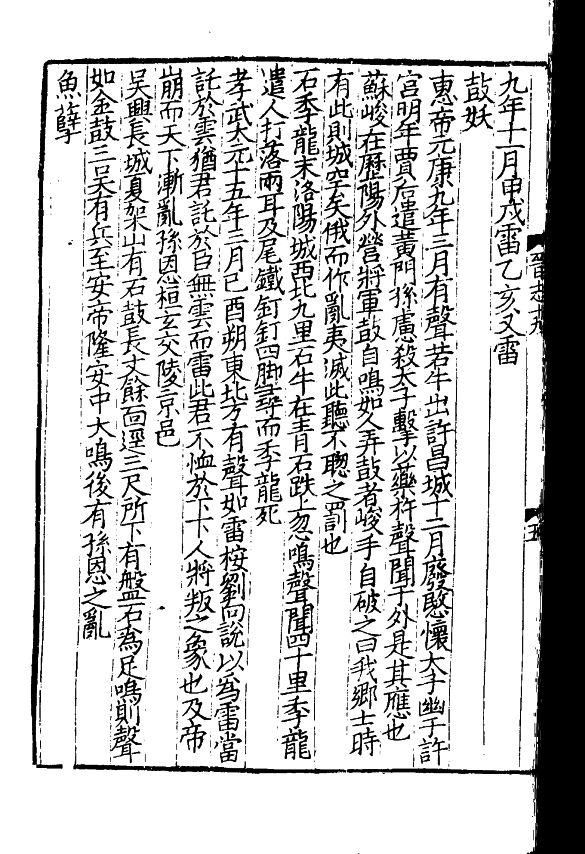 九年十一月甲戌雷乙亥又雷
鼓妖
惠帝元康九年三月有聲若牛出許昌城十二月廢愍懷太子幽于許
宮明年賈后遣黃門孫慮殺太子擊以藥杵聲聞于外是其應也
蘇峻在歷陽外營將軍鼓自鳴如人弄鼓者峻手自破之曰我鄉土時
有此則城空矣俄而作亂夷滅此聽不聦之罰也
石季龍末洛陽城西北九里石牛在青石趺上忽鳴聲聞四十里季龍
遣人打落兩耳及尾鐵釘釘四脚尋而季龍死
孝武太元十五年三月己酉朔東北方有聲如雷桉劉向說以爲雷當
託於雲猶君託於臣無雲而雷此君不恤於下下人將叛之象也及帝
崩而天下漸亂孫恩桓玄交陵京邑
吳興長城夏架山有石鼓長丈餘面逕三尺所下有盤石爲足鳴則聲
如金鼓三吳有兵至安帝隆安中大鳴後有孫恩之亂
魚孽
晉志
五